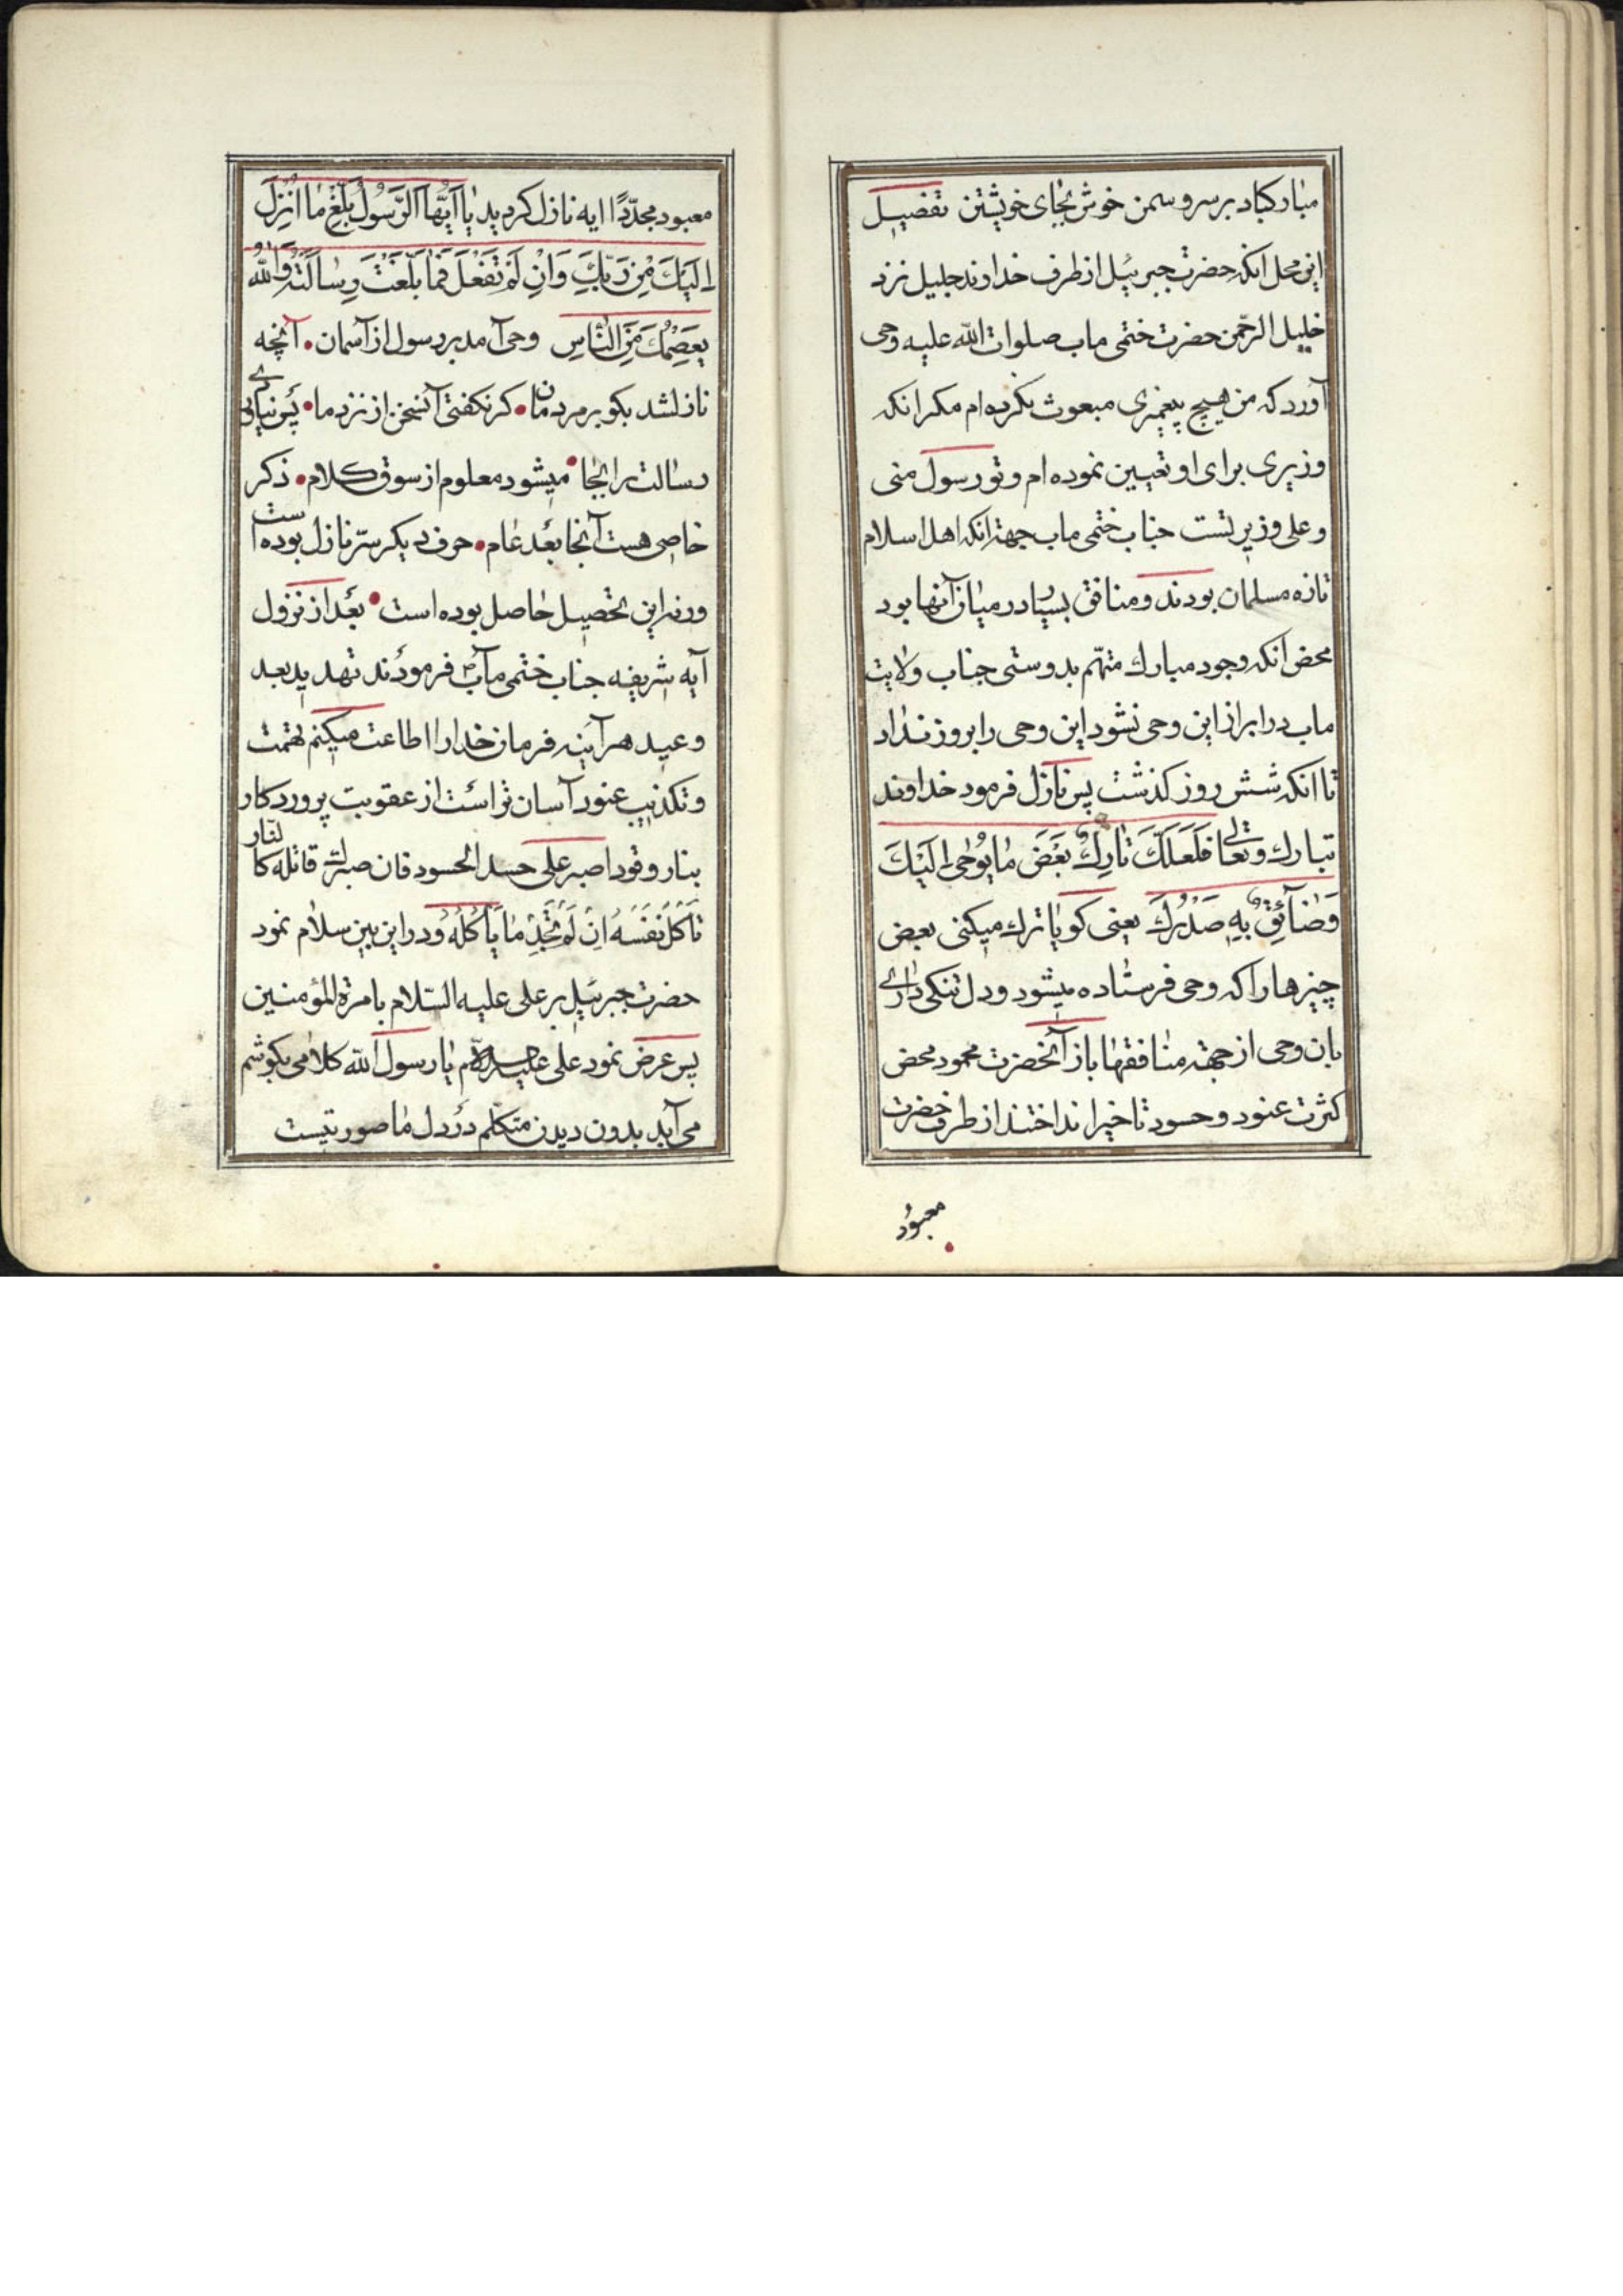 مبارکباد بر سرو سمن خوش بجای خویشتن تفصیل
این مجل انکه حضرت جبرئیل از طرف خداوند جلیل نزد
خلیل الرحمن حضرت ختمی ماب صلوات الله علیه وحی
آورد که من هیچ پیغمبری مبعوث نکرده ام مکر انکه
وزیری برای او تعیین نموده ام و تو رسول منی
و علی وزیر تست جناب ختمی ماب جهته انکه اهل اسلام
تازه مسلمان بودند و منافق بسیار در میان آنها بود
محض انکه وجود مبارك متهم بدوستی جناب ولایت
ماب در ابراز این وحی نشود این وحی را بروز نداد
تا انکه شش روز کذشت پس نازل فرمود خداوند
تبارك و تعالی فَلَعَلَّكَ تارِكٌ بَعْضَ ما یُوحی اِلَیْكَ
وَضآئِقٌ بِهِ صَدْرُكَ یعنی کویا ترك میکنی بعض
چیزها را که وحی فرستاده میشود و دل تنکی داری
بان وحی از جهته منافقها باز آنحضرت محمود محض
کثرت عنود و حسود تاخیر انداختند از طرف حضرت
معبود
معبود مجدّدًا ایه نازل کردید یا اَیُّهَا الرَّسُولُ بَلِّغْ ما اُنْزِلَ
اِلَیْكَ مِنْ رَبِّكَ وَاِنْ لَمْ تَفْعَلْ فَما بَلَّغْتَ رِسالَتَهُ وَاللهُ
یَعْصِمُكَ مِنَ النّاسِ وحی آمد بر رسول از آسمان • آنچه
نازلشد بکو بر مردمان • کر نکفتی آنسخن از نزد ما • پس نیاری
رسالت را بجا • میشود معلوم از سوق کلام • ذکر
خاصی هست آنجا بعد عام • حرف دیکر سرّ نازل بوده است
ورنه این تحصیل حاصل بوده است • بعد از نزول
آیه شریفه جناب ختمی مآبؐ فرمودند تهدید بعد
وعید هر آینه فرمان خدا را اطاعت میکنم تهمت
و تکذیب عنود آسان تر است از عقوبت پروردکار
بنار وقود اصبر علی حسد الحسود فان صبرك قاتله کالنّار
تَاْکُلُ نَفْسَهُ اِنْ لَمْ تَجِدْ ما یَاْکُلُهُ و در این بین سلام نمود
حضرت جبرئیل بر علی علیه السّلام بامرة المؤمنین
پس عرض نمود علی علیه السلام یا رسول الله کلامی بکوشم
می آید بدون دیدن متکلم در دل ما صورتیست